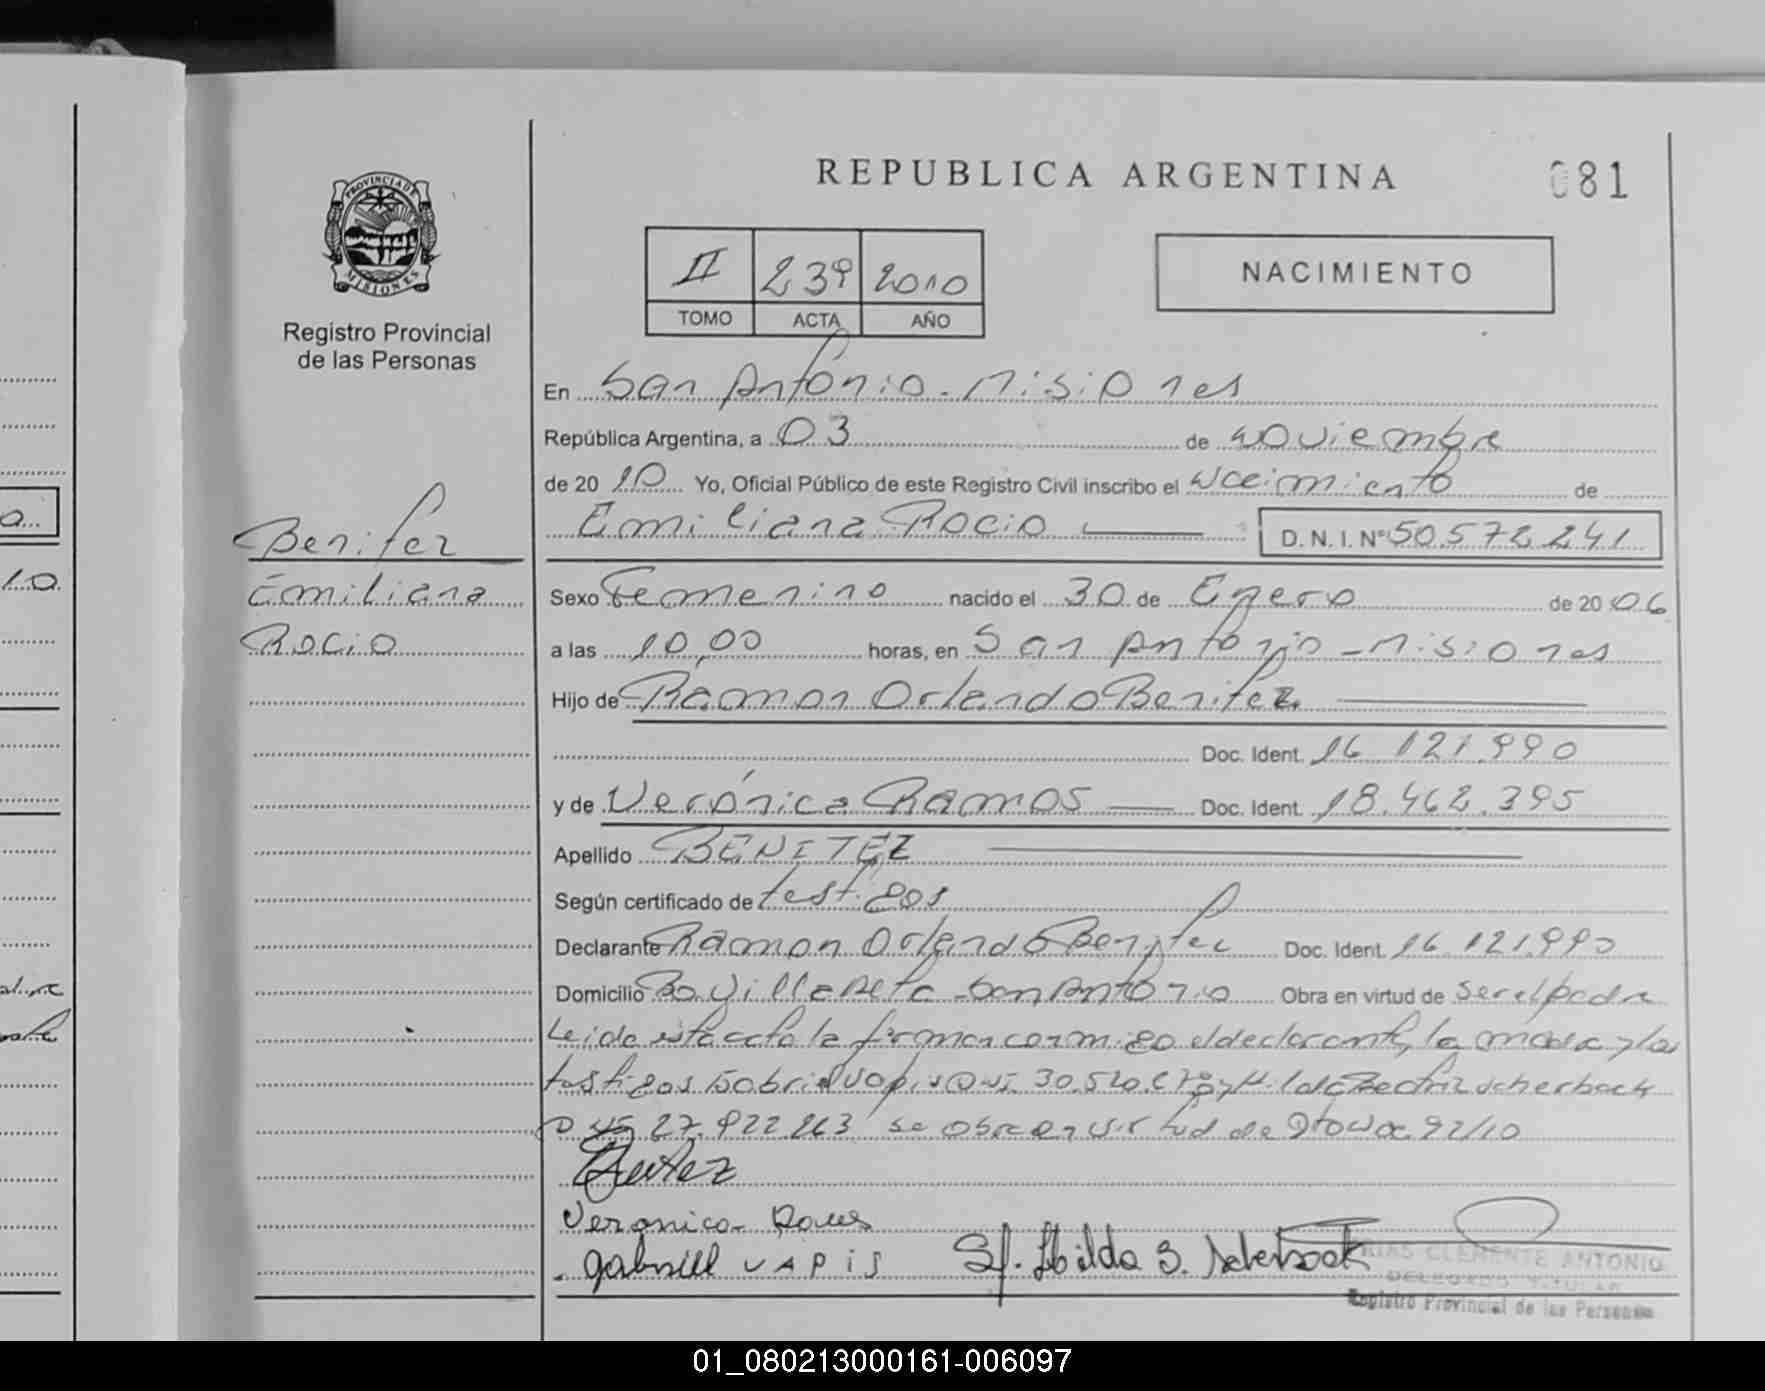 REPUBLICA ARGENTINA
081
PROVINCIA DE MISIONES
Registro Provincial
de las Personas
II 239 2010
TOMO ACTA AÑO
NACIMIENTO
En San Antonio - Misiones
República Argentina, a 03 de Noviembre
de 20 10 Yo, Oficial Público de este Registro Civil inscribo el Nacimiento de
Emiliana Rocio D.N.I. Nº 50.572.241
Benitez
Emiliana
Rocio
Sexo Femenino nacido el 30 de Enero de 20 06
a las 10,00 horas, en San Antonio - Misiones
Hijo de Ramon Orlando Benitez
Doc. Ident. 16.121.990
y de Verónica Ramos Doc. Ident. 18.462.395
Apellido BENITEZ
Según certificado de testigos
Declarante Ramon Orlando Benitez Doc. Ident. 16.121.990
Domicilio Bo Villa Alta - San Antonio Obra en virtud de ser el padre
Leida esta acta la firman conmigo el declarante, la madre y los
testigos Gabriel Vapis DNI 30.520. y Hilda Beatriz Scherback
27.922.263 se obra en virtud de 92/10
Benitez
Veronica Ramos
gabriel VAPIS
Hilda B.
FRIAS CLEMENTE ANTONIO
DELEGADO TITULAR
Registro Provincial de las Personas
01_080213000161-006097